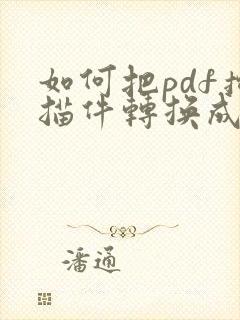 如何把pdf扫
描件轉換成
潘通